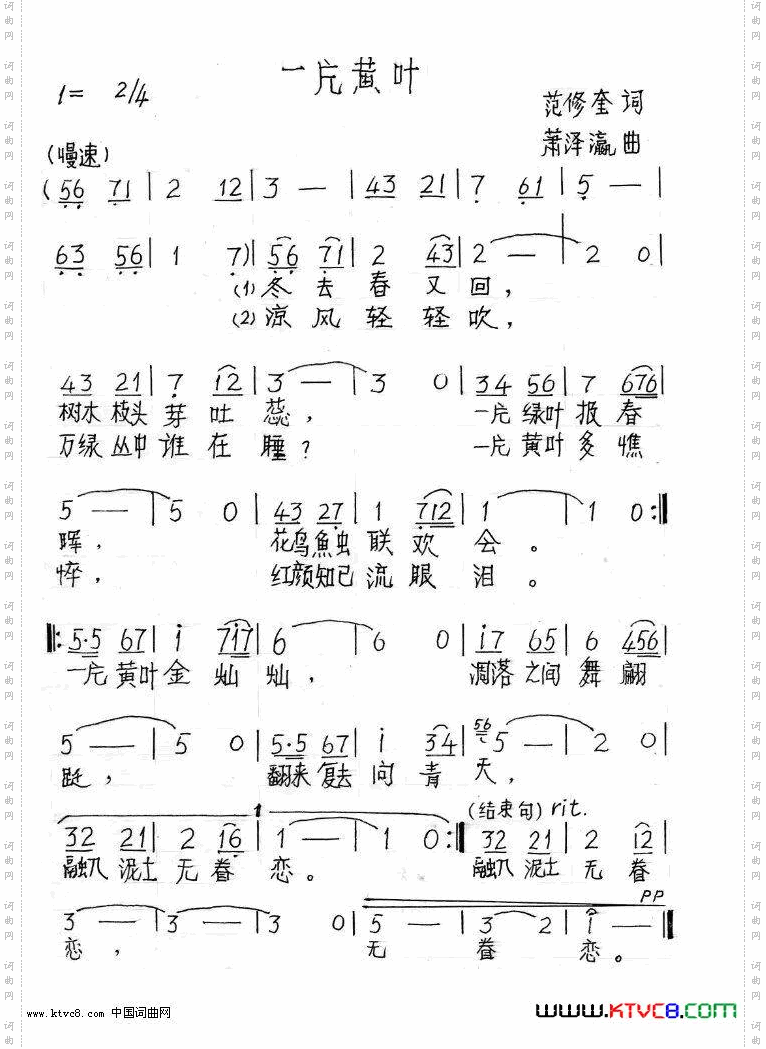 一片黄叶
1= 2/4
范修奎 词
萧泽瀛 曲
(慢速)
(56 71 | 2 12 | 3 — | 43 21 | 7 61 | 5 — |
63 56 | 1 7) | 56 71 | 2 43 | 2 — | 2 0 |
(1) 冬去春又回，
(2) 凉风轻轻吹，
43 21 | 7 12 | 3 — | 3 0 | 34 56 | 7 676 |
树木枝头芽吐蕊， 一片绿叶报春
万绿丛中谁在睡？ 一片黄叶多憔
5 — | 5 0 | 43 27 | 1 712 | 1 — | 1 0 :‖
晖， 花鸟鱼虫联欢会。
悴， 红颜知己流眼泪。
‖: 5·5 67 | i 717 | 6 — | 6 0 | i7 65 | 6 456 |
一片黄叶金灿灿， 凋落之间舞翩
5 — | 5 0 | 5·5 67 | i 34 | 56 5 — | 2 0 |
跹， 翻来复去向青天，
1 (结束句) rit.
32 21 | 2 16 | 1 — | 1 0 :‖ 32 21 | 2 12 |
融入泥土无眷恋。 融入泥土无眷
PP
3 — | 3 — | 3 0 | 5 — | 3 2 | i — ‖
恋， 无眷恋。
www.ktvc8.com 中国词曲网
WWW.KTVC8.COM
词曲网